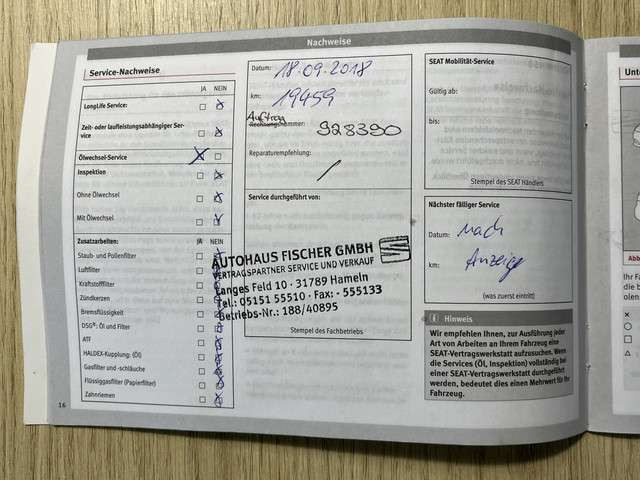 Nachweise
Service-Nachweise
JA NEIN
LongLife Service:
Zeit- oder laufleistungsabhängiger Ser-
vice
Ölwechsel-Service
Inspektion
Ohne Ölwechsel
Mit Ölwechsel
Zusatzarbeiten: JA NEIN
Staub- und Pollenfilter
Luftfilter
Kraftstofffilter
Zündkerzen
Bremsflüssigkeit
DSG®: Öl und Filter
ATF
HALDEX-Kupplung: (Öl)
Gasfilter und -schläuche
Flüssiggasfilter (Papierfilter)
Zahnriemen
16
Datum: 18.09.2018
km: 19459
Auftrag
Rechnungsnummer: 928390
Reparaturempfehlung: /
Service durchgeführt von:
AUTOHAUS FISCHER GMBH
VERTRAGSPARTNER SERVICE UND VERKAUF
Langes Feld 10 · 31789 Hameln
Tel.: 05151 55510 · Fax: - 555133
Betriebs-Nr.: 188/40895
Stempel des Fachbetriebs
SEAT Mobilität-Service
Gültig ab:
bis:
Stempel des SEAT Händlers
Nächster fälliger Service
Datum: nach
km: Anzeige
(was zuerst eintritt)
i Hinweis
Wir empfehlen Ihnen, zur Ausführung jeder
Art von Arbeiten an Ihrem Fahrzeug eine
SEAT-Vertragswerkstatt aufzusuchen. Wenn
die Services (Öl, Inspektion) vollständig bei
einer SEAT-Vertragswerkstatt durchgeführt
werden, bedeutet dies einen Mehrwert für Ihr
Fahrzeug.
Unte
Abb
Ihr Fa
olen s